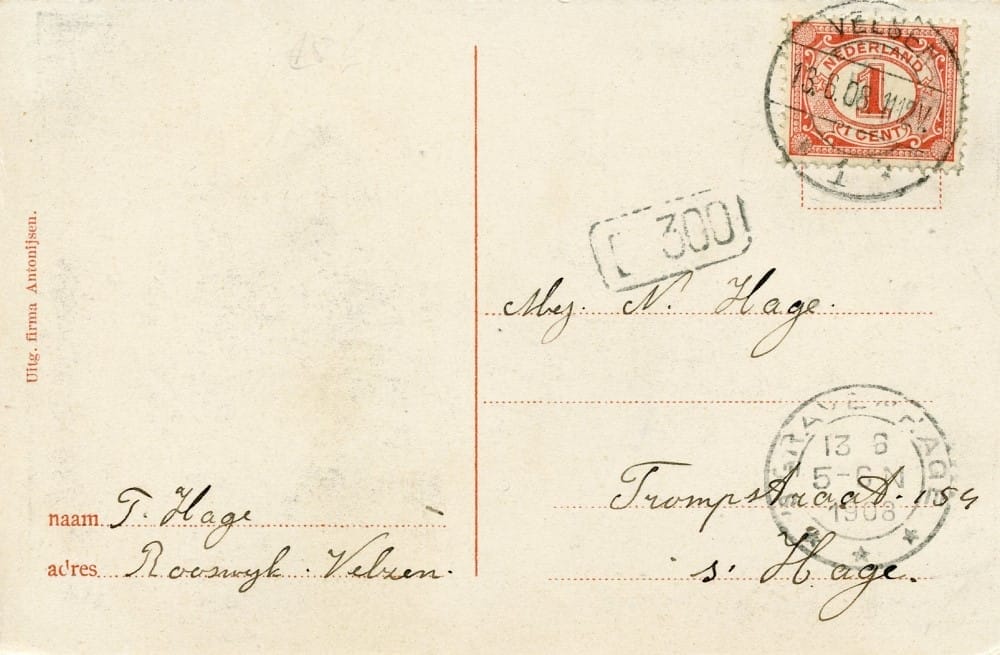 VELSEN
13.6.08.11-12V.
1
NEDERLAND
1
1 CENT
300
Mej. N. Hage.
Trompstraat. 154
s' Hage.
'S GRAVENHAGE
13 6
5-6 N
1908
naam T. Hage
adres Rooswyk. Velzen.
Uitg. firma Antonijsen.